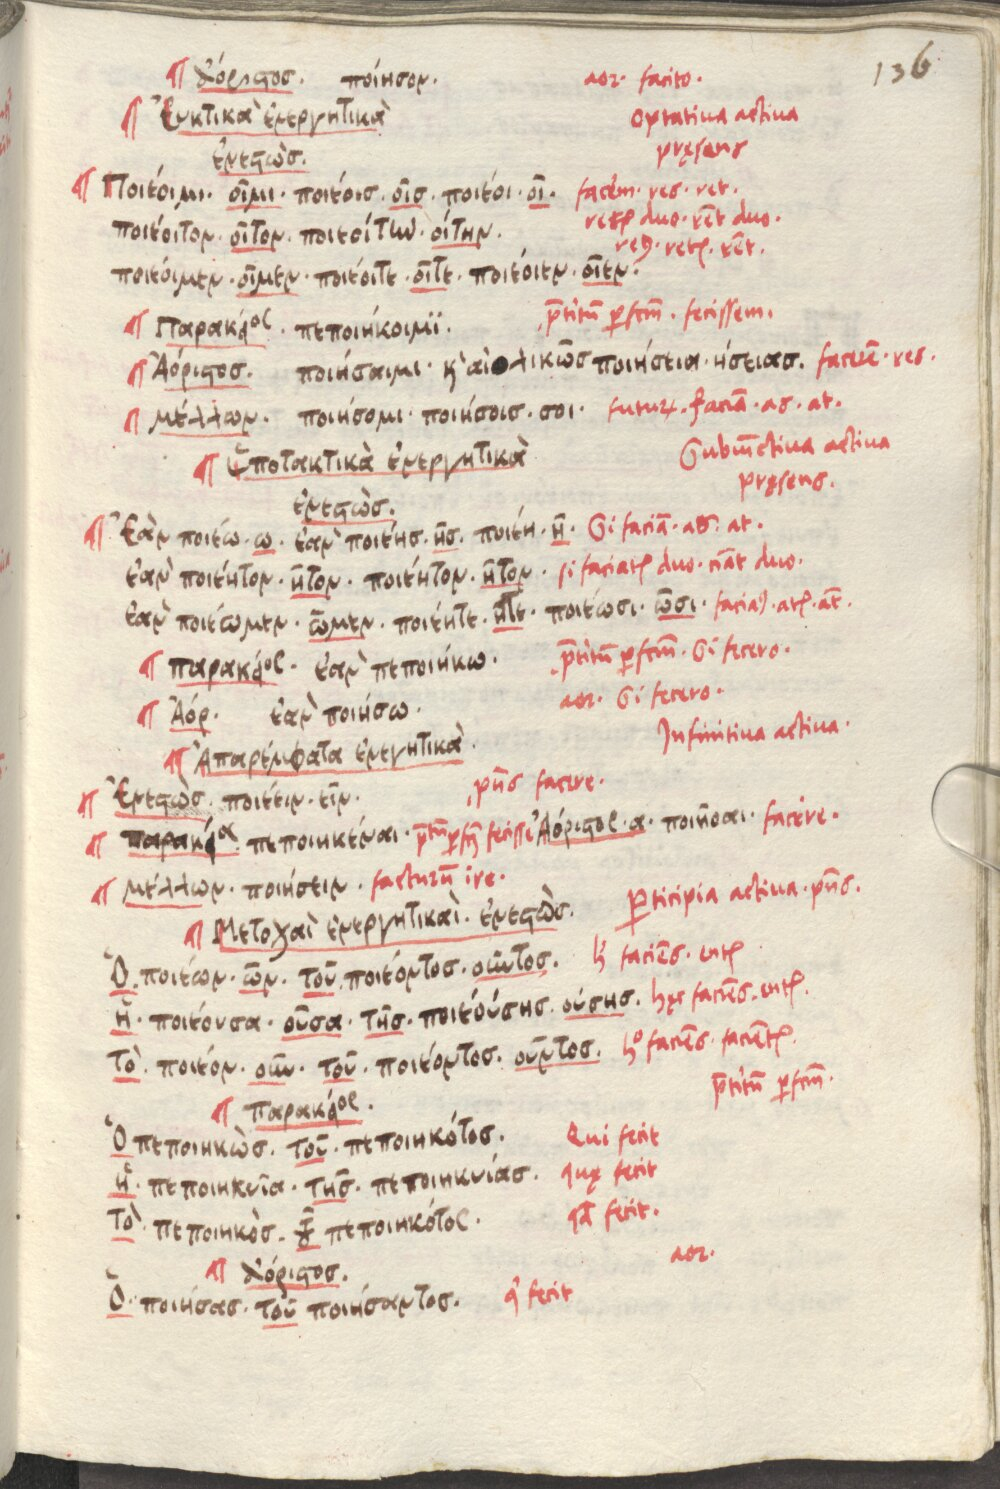 136
¶ Ἀόριστος. ποίησον. aor. facito.
¶ Ἐυκτικὰ ἐνεργητικὰ optatiua actiua
ἐνεστὼς. pręsens
¶ Ποιέοιμι. οῖμι. ποιέοις. οῖς. ποιέοι. οῖ. facerem. res. ret.
ποιέοιτον. οῖτον. ποιεοίτην. οίτην. duo. duo.
ποιέοιμεν. οῖμεν. ποιέοιτε. οῖτε. ποιέοιεν. οῖεν.
¶ Παρακείμενος. πεποιήκοιμϊ. pretitum perfectum. fecissem.
¶ Ἀόριστος. ποιήσαιμι. κ αἰολικῶς ποιήσεια. ήσειας. res.
¶ Μέλλων. ποιήσοιμι. ποιήσοις. σοι. futur. faciā. as. at.
¶ Ὑποτακτικὰ ἐνεργητικὰ Subiūctiua actiua
ἐνεστὼς. pręsens.
¶ Ἐὰν ποιέω. ω. ἐὰν ποιέης. ῆς. ποιέη. ῆ. Si faciā. as. at.
ἐὰν ποιέητον. ῆτον. ποιέητον. ῆτον. si duo. duo.
ἐὰν ποιέωμεν. ῶμεν. ποιέητε. ῆτε. ποιέωσι. ῶσι.
¶ παρακείμενος. ἐὰν πεποιήκω. pretitum perfectum. Si fecero.
¶ Ἀόρ. ἐὰν ποιήσω. aor. Si fecero.
¶ Ἀπαρέμφατα ἐνεργητικὰ. Infinitiua actiua.
¶ Ἐνεστὼς. ποιέειν. εῖν. pn̄s facere.
¶ παρακείμενος πεποιηκέναι. fecisse Ἀόριστος. α. ποιῆσαι. facere.
¶ Μέλλων. ποιήσειν. facturū ire.
¶ Μετοχαὶ ἐνεργητικαὶ. ἐνεστὼς. Participia actiua. pn̄s.
Ὁ. ποιέων. ῶν. τοῦ. ποιέοντος. οῦντος. faciēs.
ἡ. ποιέουσα. οῦσα. τῆς. ποιεούσης. ούσης. faciēs.
τὸ. ποιέον. οῦν. τοῦ. ποιέοντος. οῦντος. faciēs.
¶ παρακείμενος. pretitum perfectum.
Ὁ πεποιηκὼς. τοῦ. πεποιηκότος. Qui fecit
ἡ. πεποιηκυῖα. τῆς. πεποιηκυίας. quę fecit
τὸ. πεποιηκὸς. τοῦ πεποιηκότος. qd fecit.
¶ Ἀόριστος. aor.
Ὁ. ποιήσας. τοῦ ποιήσαντος. q fecit